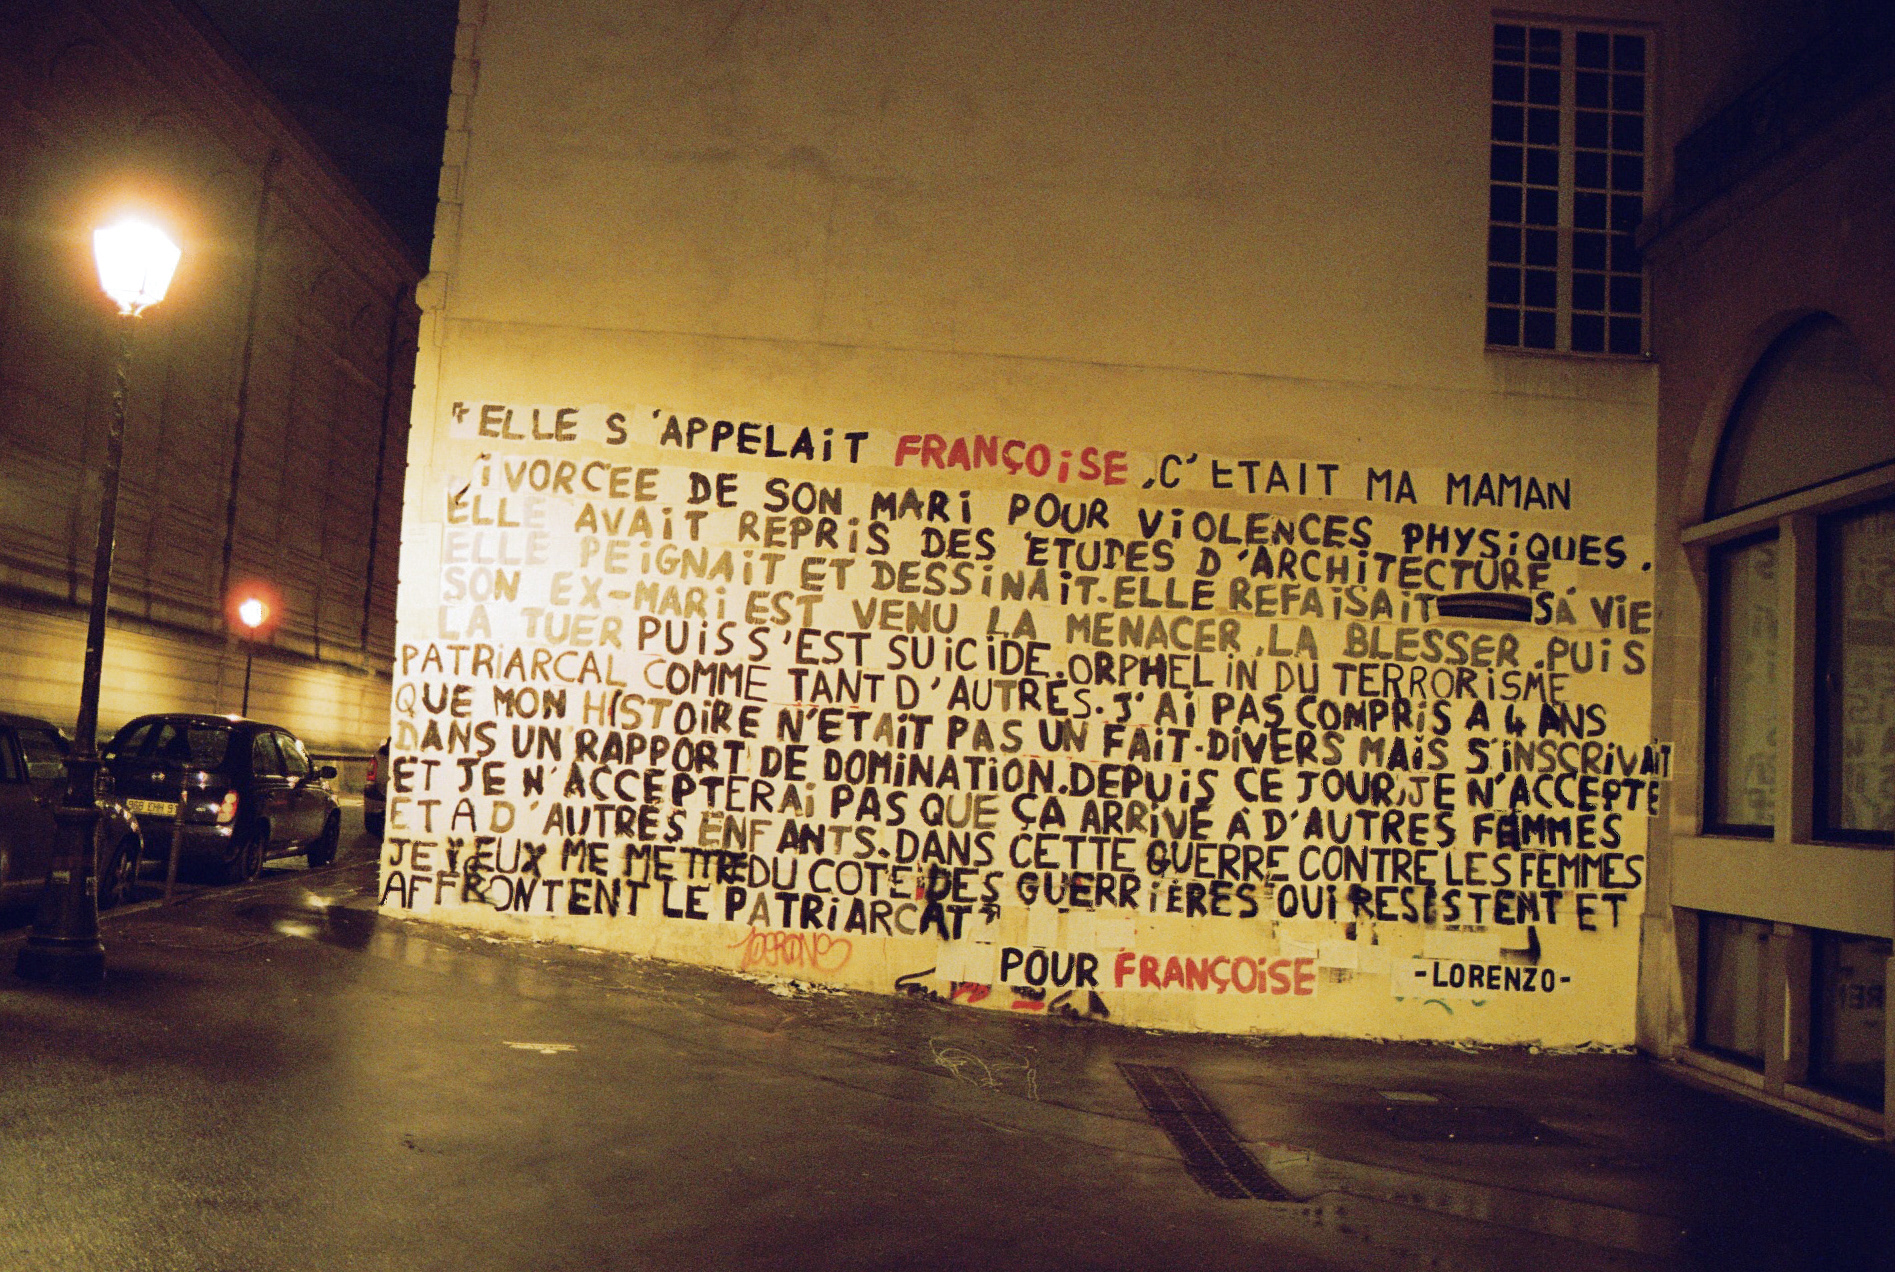 "ELLE S'APPELAiT FRANÇOiSE, C'ETAIT MA MAMAN
DiVORCEE DE SON MARi POUR ViOLENCES PHYSiQUES.
ELLE AVAiT REPRiS DES ETUDES D'ARCHiTECTURE.
ELLE PEiGNAiT ET DESSiNAiT. ELLE REFAiSAiT SA ViE
SON EX-MARi EST VENU LA MENACER, LA BLESSER, PUiS
LA TUER PUiS S'EST SUiCiDE. ORPHELiN DU TERRORiSME
PATRiARCAL COMME TANT D'AUTRES. J'Ai PAS COMPRiS A 4 ANS
QUE MON HiSTOiRE N'ETAiT PAS UN FAiT-DiVERS MAiS S'iNSCRiVAiT
DANS UN RAPPORT DE DOMiNATiON. DEPUiS CE JOUR, JE N'ACCEPTE
ET JE N'ACCEPTERAi PAS QUE ÇA ARRiVE À D'AUTRES FEMMES
ET A D'AUTRES ENFANTS. DANS CETTE GUERRE CONTRE LES FEMMES
JE VEUX ME METTRE DU COTE DES GUERRiERES QUi RESiSTENT ET
AFFRONTENT LE PATRiARCAT"
POUR FRANÇOiSE -LORENZO-